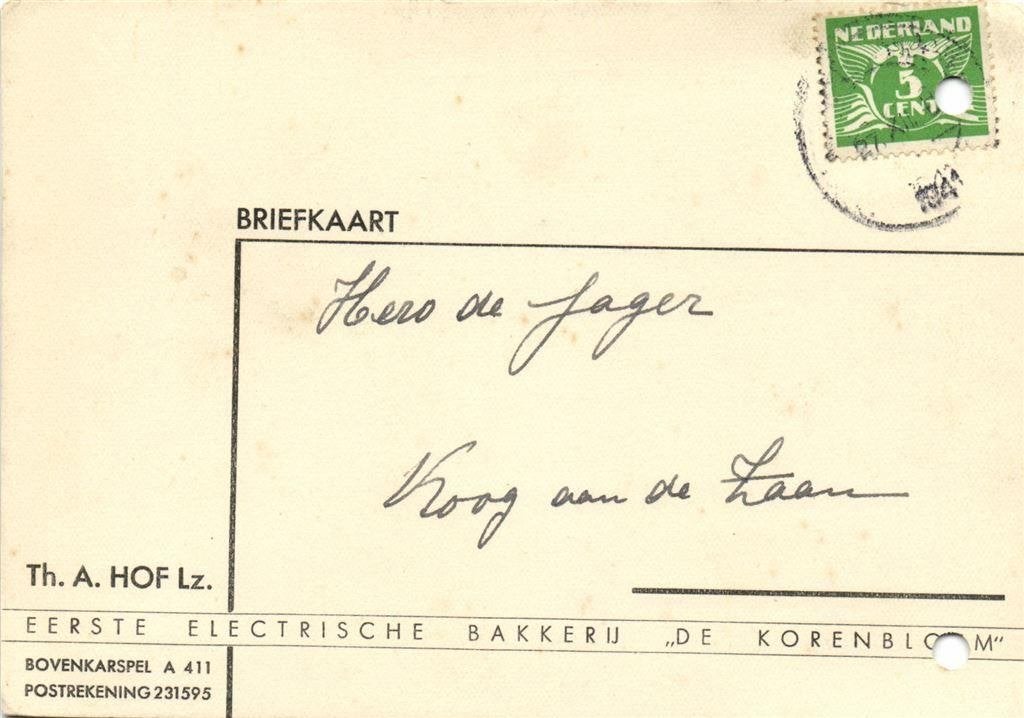 NEDERLAND
5
CENT
27 XII
1941
BRIEFKAART
Hero de Jager
Koog aan de Zaan
Th. A. HOF Lz.
EERSTE ELECTRISCHE BAKKERIJ „DE KORENBLOEM"
BOVENKARSPEL A 411
POSTREKENING 231595